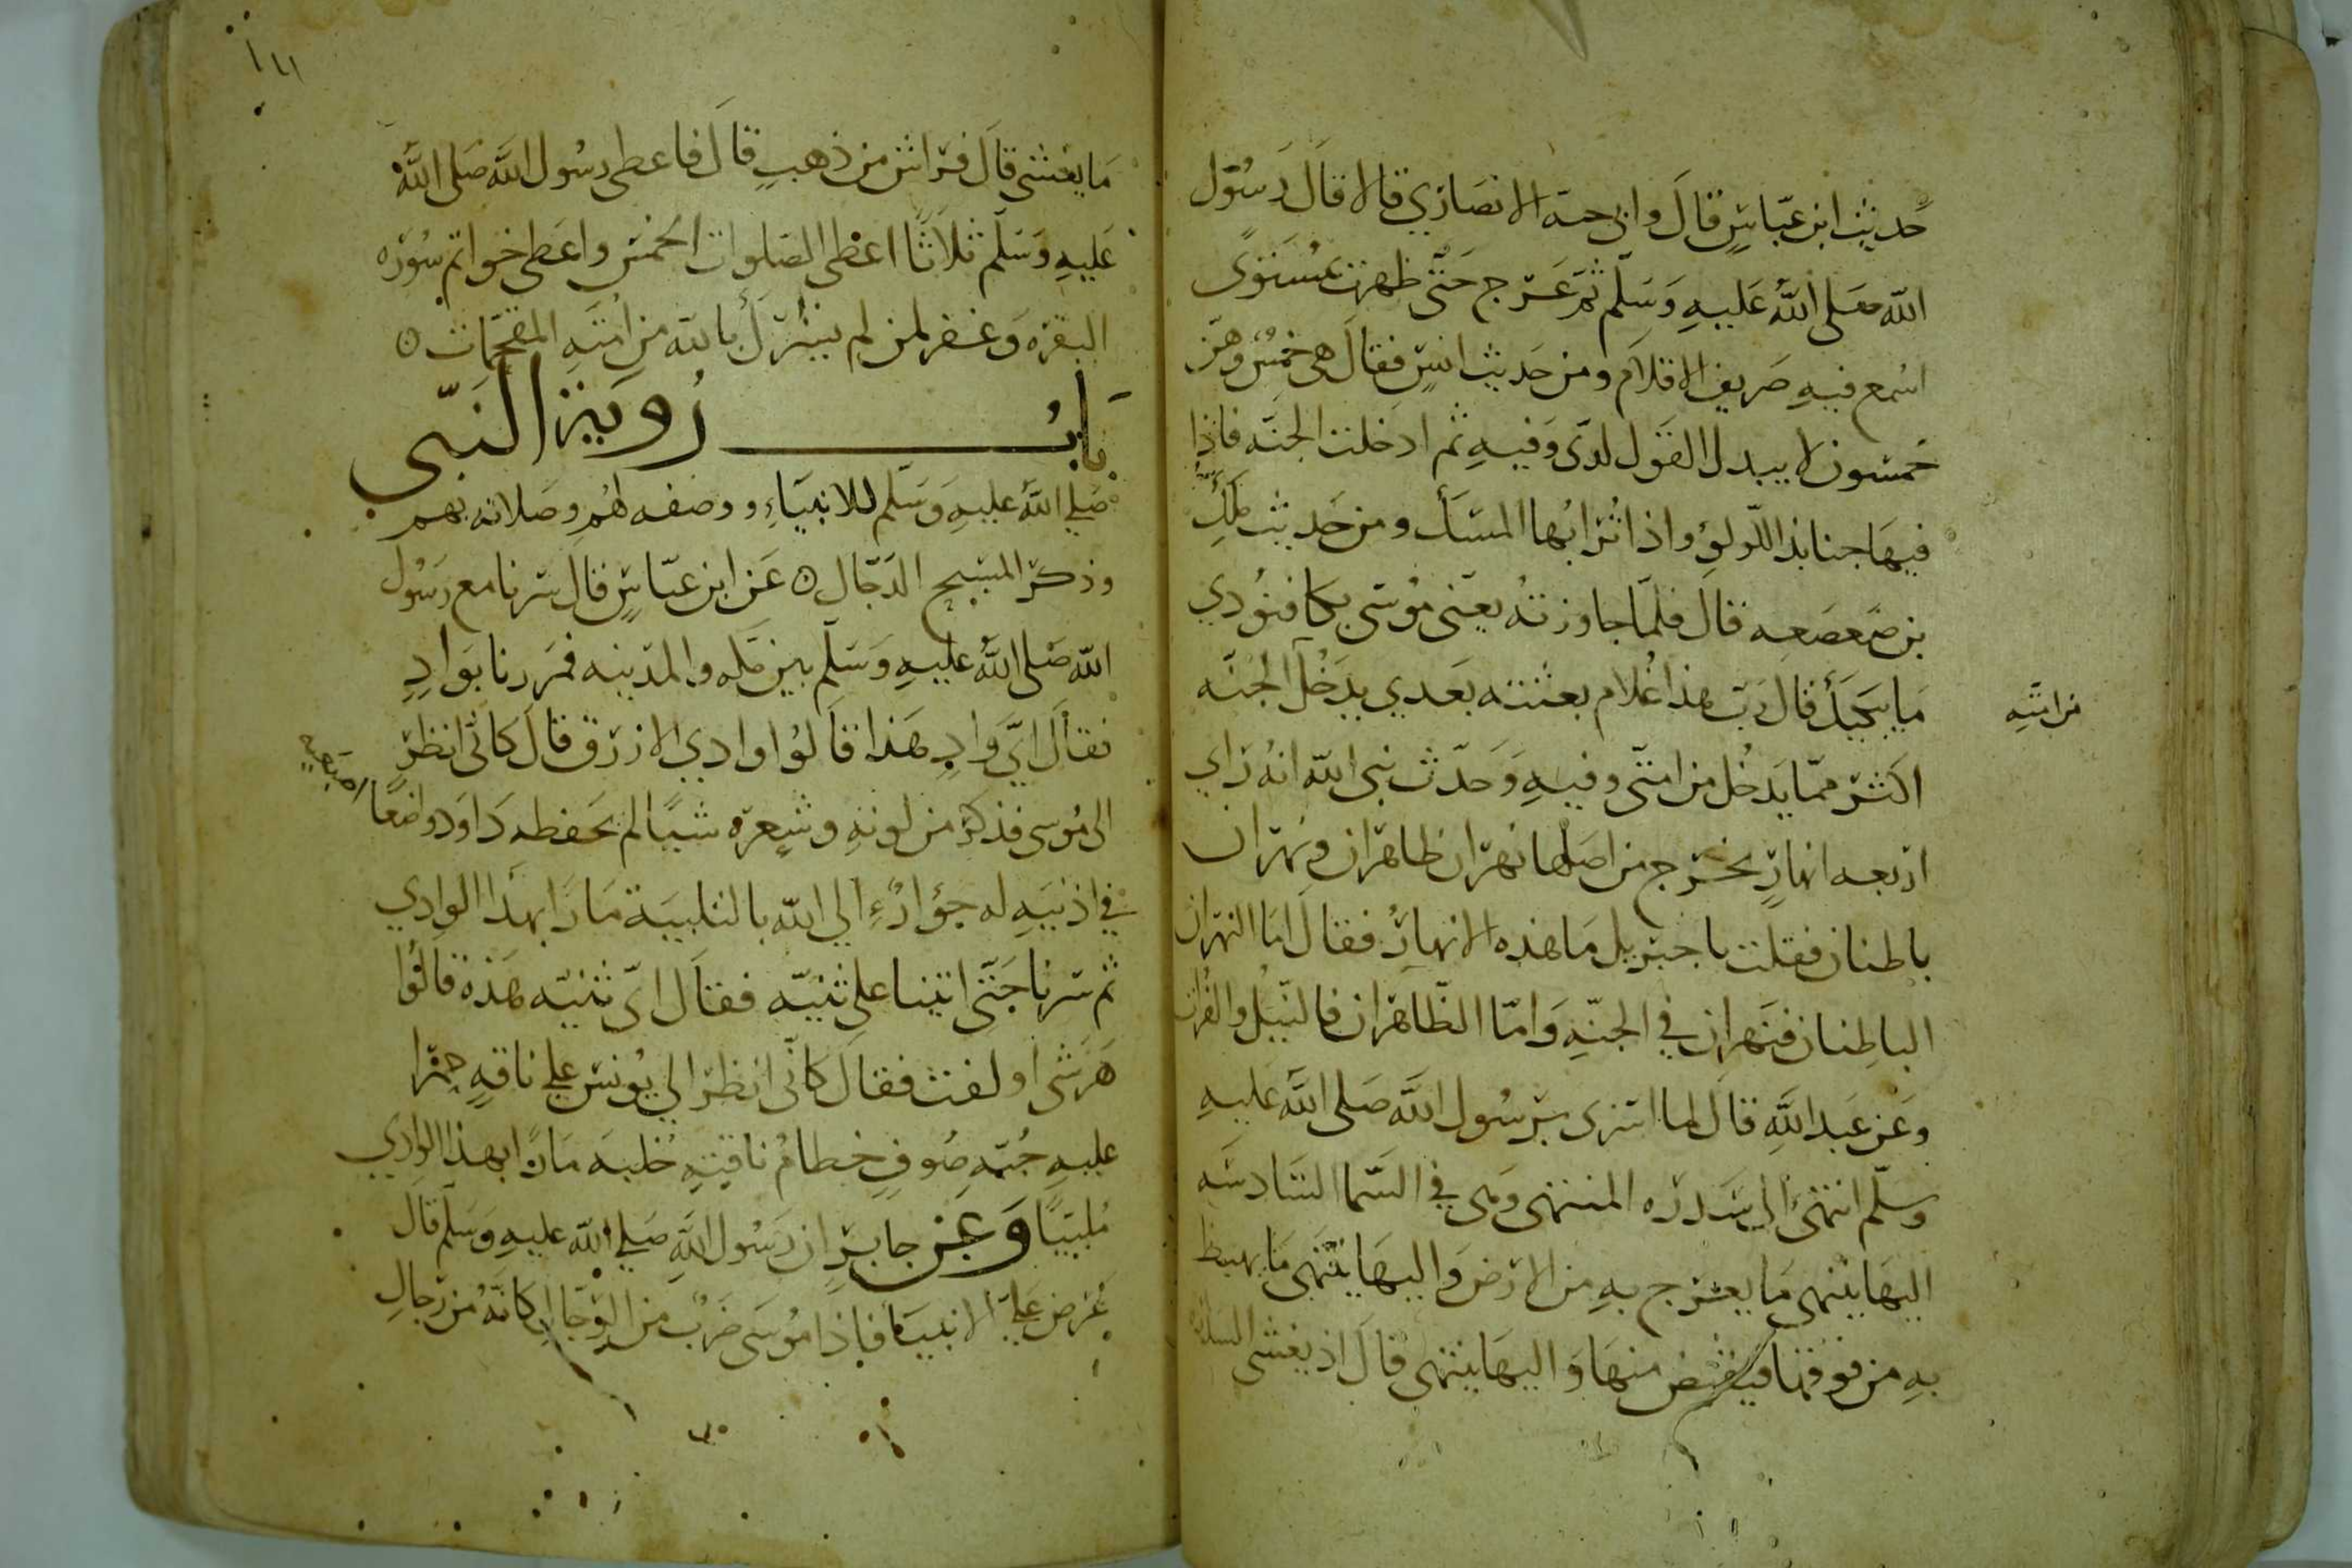 حديث ابن عباس قال وابى حبة الانصاري قالا قال رسول
الله صلى الله عليه وسلم ثم عرج حتى ظهرت بمستوى
اسمع فيه صريف الاقلام ومن حديث انس فقال هي خمس وهن
خمسون لا يبدل القول لدى وفيه ثم ادخلت الجنة فاذا
فيها جنابذ اللولو واذا ترابها المسك ومن حديث ملك
بن صعصعه قال فلما جاوزته يعنى موسى بكا فنودي
ما يبكيك قال رب هذا غلام بعثته بعدي يدخل الجنه
من امته
اكثر مما يدخل من امتى وفيه وحدث نبى الله انه راي
اربعه انهار يخرج من اصلها نهران ظاهران ونهران
باطنان فقلت يا جبريل ما هذه الانهار فقال اما النهران
الباطنان فنهران في الجنه واما الظاهران فالنيل والفرات
وعن عبد الله قال لما اسرى برسول الله صلى الله عليه
وسلم انتهى الى سدره المنتهى وهى في السما السادسه
اليها ينتهى ما يعرج به من الارض واليها ينتهى ما يهبط
به من فوقها فيقبض منها واليها ينتهى قال اذ يغشى السدرة
ما يغشى قال فراش من ذهب قال فاعطى رسول الله صلى الله
عليه وسلم ثلاثا اعطى الصلوات الخمس واعطى خواتم سوره
البقره وغفر لمن لم يشرك بالله من امته المقحمات
باب رويه النبي
صلى الله عليه وسلم للانبياء ووصفه لهم وصلاته بهم
وذكر المسيح الدجال عن ابن عباس قال سرنا مع رسول
الله صلى الله عليه وسلم بين مكه والمدينه فمررنا بواد
فقال اي واد هذا قالوا وادي الازرق قال كانى انظر
الى موسى فذكر من لونه وشعره شيا لم يحفظه داود واضعا اصبعيه
في اذنيه له جؤار الي الله بالتلبية مارا بهذا الوادي
ثم سرنا حتى اتينا على ثنيه فقال اى ثنيه هذه قالوا
هرشى او لفت فقال كانى انظر الي يونس علي ناقه حمرا
عليه جبه صوف خطام ناقته خلبه مارا بهذا الوادي
ملبيا وعن جابر ان رسول الله صلي الله عليه وسلم قال
عرض علي الانبياء فاذا موسى ضرب من الرجال كانه من رجال